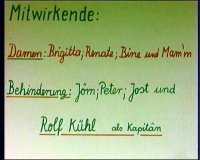 Mitwirkende:
Damen: Brigitta; Renate; Bine und Mam'm
Behinderung: Jörn; Peter; Jost und
Rolf Kühl als Kapitän